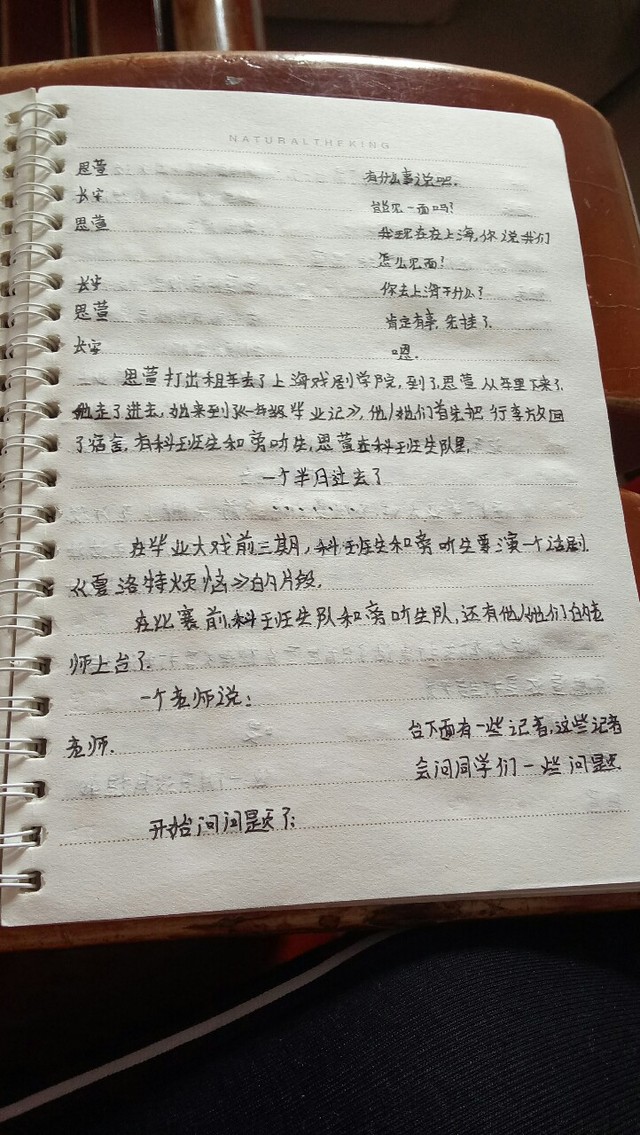 NATURALTHEKING
思萱 有什么事说吧.
长宇 能见一面吗?
思萱 我现在在上海,你说我们
怎么见面?
长宇 你去上海干什么?
思萱 肯定有事,先挂了.
长宇 嗯.
思萱打出租车去了上海戏剧学院,到了,思萱从车里下来了.
她走了进去,她来到《一年级毕业记》,他/她们首先把行李放回
了宿舍,有科班生和旁听生,思萱在科班生队里,
一个半月过去了
.......
在毕业大戏前三期,科班生和旁听生要演一个话剧.
《夏洛特烦恼》的片段.
在比赛前,科班生队和旁听生队,还有他/她们的老
师上台了.
一个老师说:
老师. 台下面有一些记者,这些记者
会问同学们一些问题.
开始问问题了: